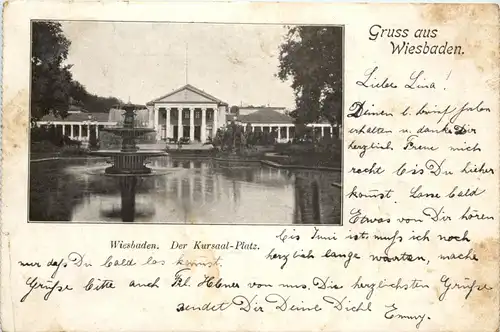 Gruss aus
Wiesbaden.
Liebe Lina!
Deinen l. Brief haben
erhalten u. danke Dir
herzlich. Freue mich
recht bis Du hieher
kommst. Lasse bald
Etwas von Dir hören
Wiesbaden. Der Kursaal-Platz.
bis Juni ist muß ich noch
herzlich lange warten, mache
nur daß Du bald los kommst.
Grüße bitte auch Frl. von uns. Die herzlichsten Grüße
sendet Dir Deine Dich
Emmy.